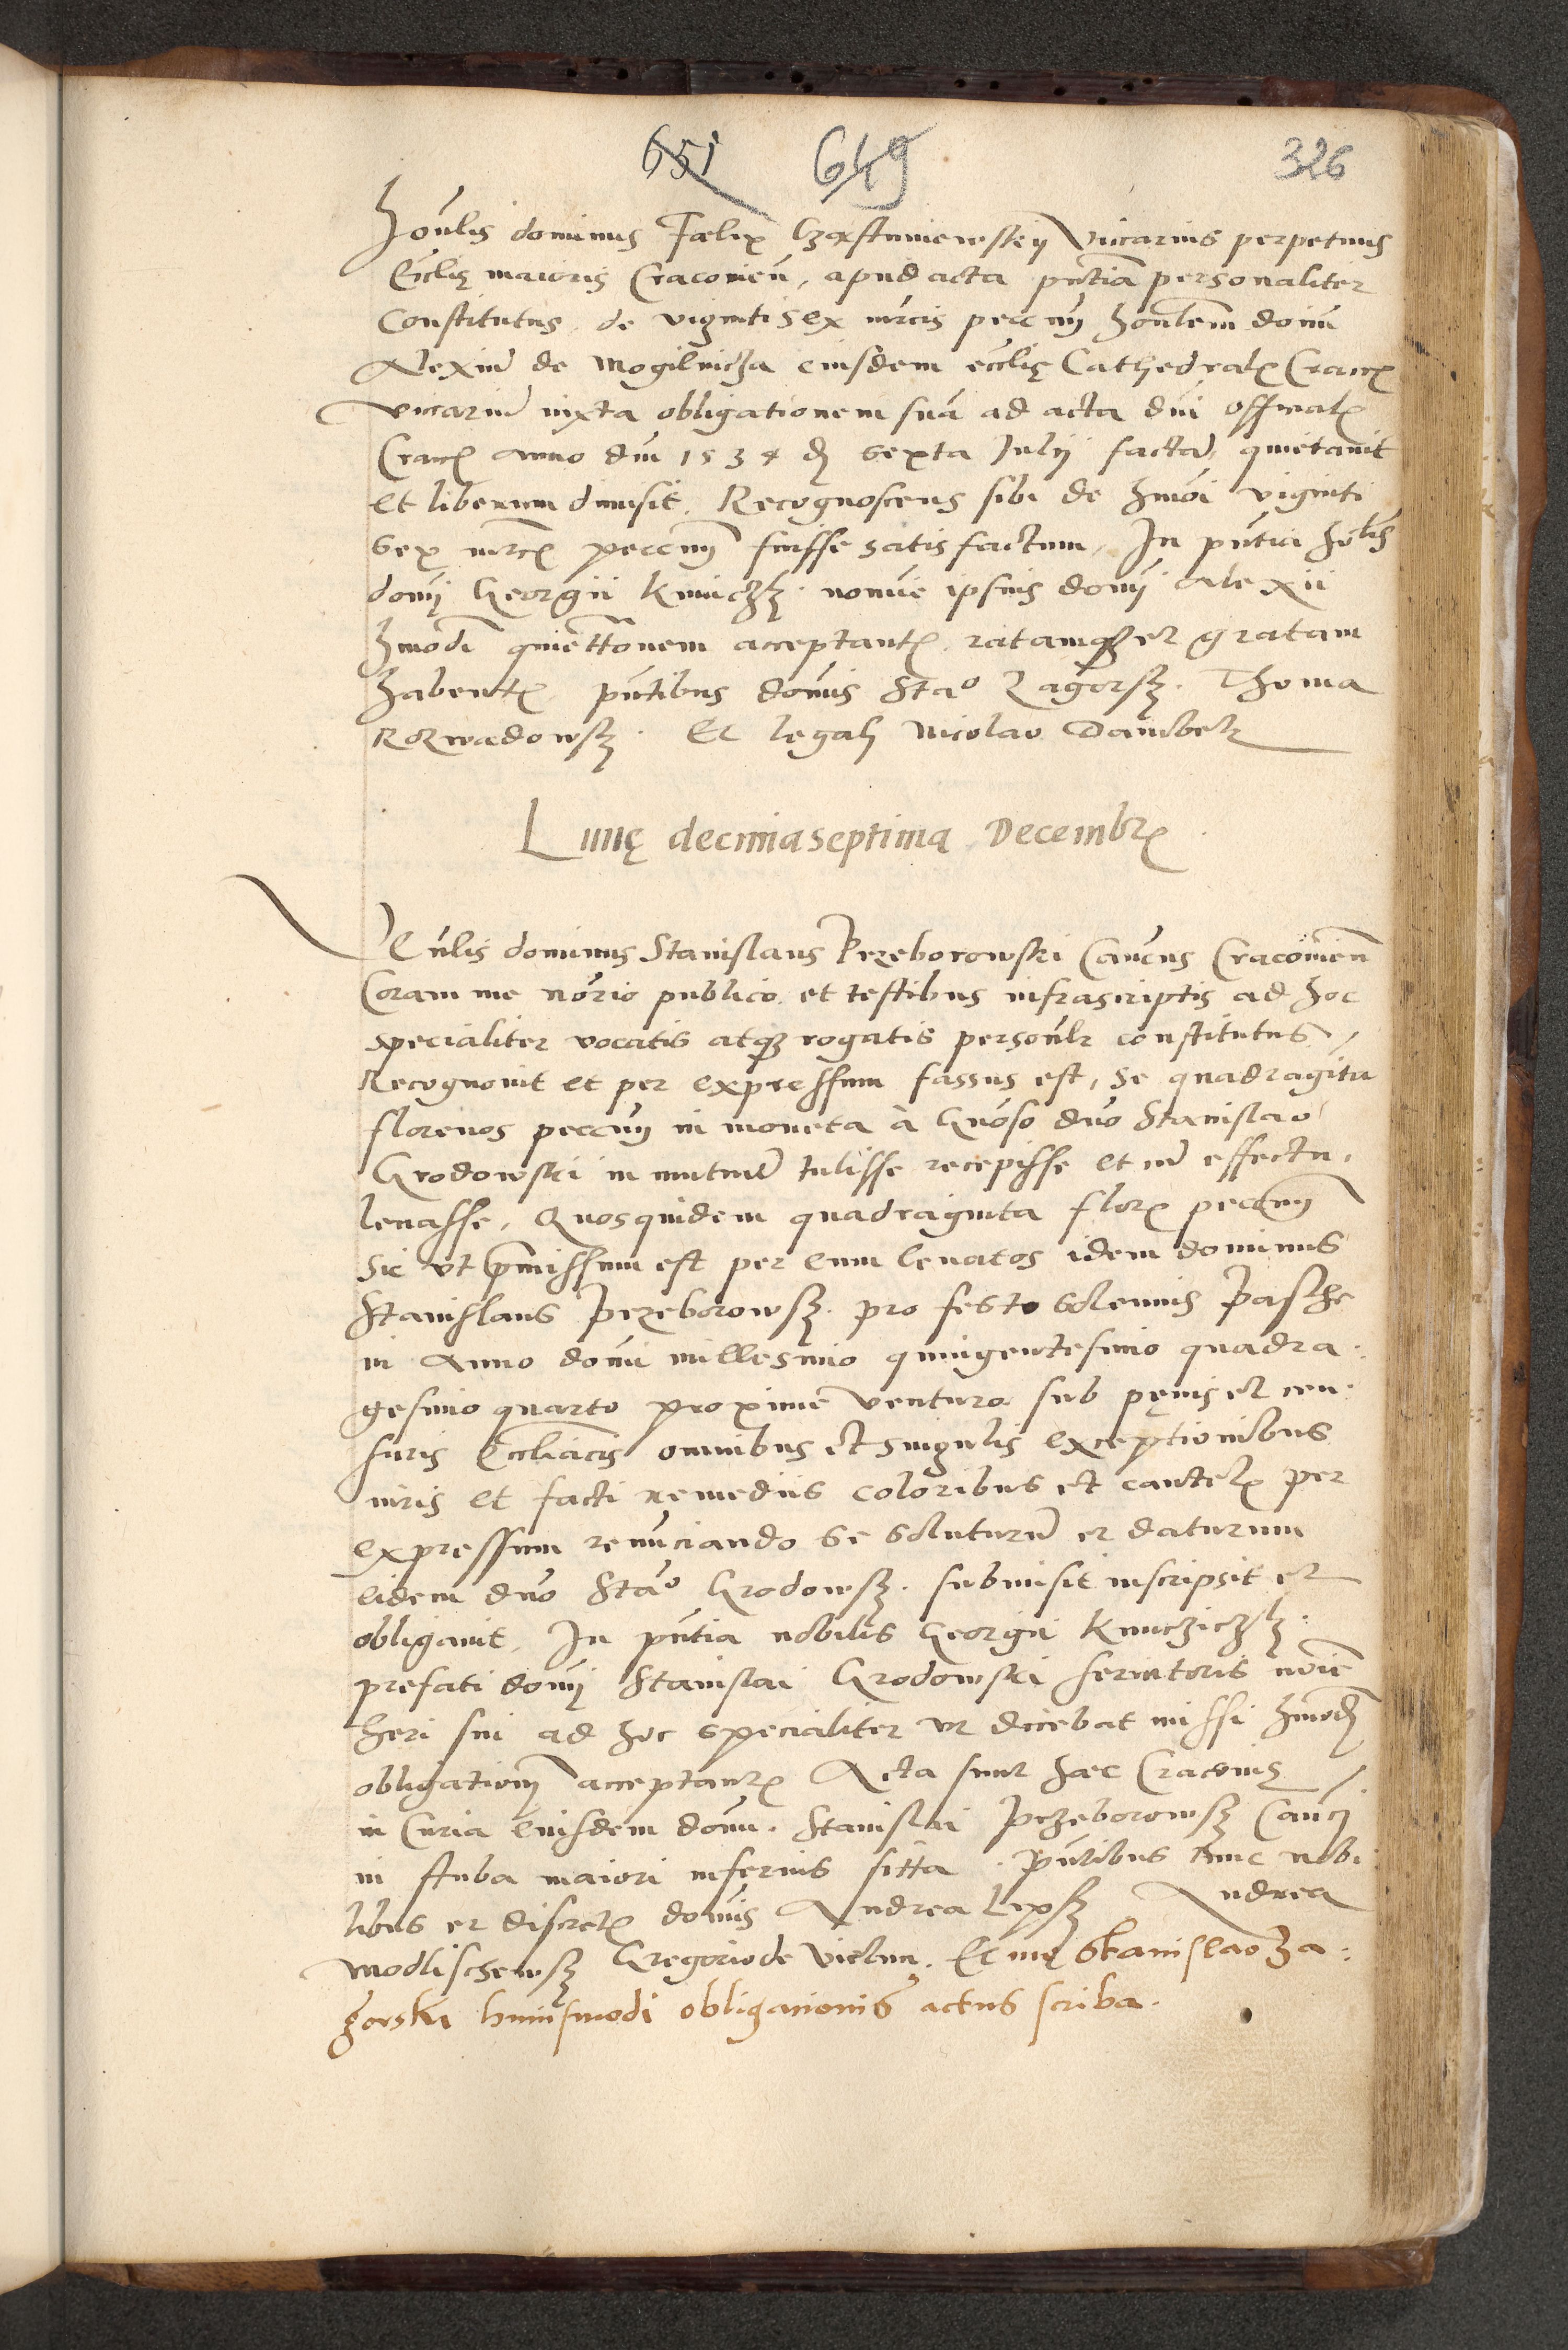 651 649 326
Honlis dominus Fælix Czastuniewskij Viccarius perpetuus
Ecclię maioris Cracovien, apud acta pntia personaliter
Constitutus, de viginti sex mrcis peccunij honlem domi
Alexium de Mogilnicza eiusdem ecclię Cathedral Cracc
viccarium iuxta obligationem suã ad acta dni Official
Cracc Anno dni 1534 d sexta Julij factã, quietavit
et liberum dimisit. Recognoscens sibi de hmoi viginti
sex mrc peccunij fuisse satisfactum, In pntia hōlis
domj Georgii Kmiczicz. nomie ipsius domj Alexii
hmodi quiettōnem acceptant, ratamq et gratam
habent, pntibus domis Stao Zagorsk. Thoma
Rozwadowsk. Et legali Nicolao Dambek
Lunę decimaseptima Decembr
Venlis dominus Stanislaus Przeborowski Cancus Cracovien
Coram me nōrio publico et testibus infrascriptis ad hoc
specialiter vocatis atq rogatis personlr constitutus,
Recognovit et per expressum fassus est, Se quadraginta
florenos peccunij in moneta à Gnōso dno Stanislao
Grodowski in mutuum tulisse recepisse et in effectu.
levasse. Quosquidem quadraginta flor peccunij
Sic ut pmissum est per eum levatos idem dominus
Stanislaus Przeborowsk. pro festo solennis Pasche
in Anno domi millesimo quingentesimo quadra-
gesimo quarto proxime venturo sub pęnis et cen-
suris Ecclīacis omnibus et singulis exceptionibus
iuris et facti remediis coloribus et cautel per
expressum renunciando se soluturum et daturum
eidem dno Stao Grodowsk. submisit inscripsit et
obligavit, In pntia nobilis Georgii Kmiczicz.
prefati domj Stanislai Grodowski servitoris noīe
heri sui ad hoc specialiter ut dicebat missi hmod
obligationem acceptant Acta sunt hæc Cracovię
in Curia eiusdem domi. Stanislai Przeborowsk Canci
in stuba maiori inferius sitta. pntibus tunc nobi
libus et discret domis Andrea Lipsk Andrea
Modlischewsk Gregorio de Vielun. Et me Stanislao Za-
gorski huiusmodi obligationis actus scriba.